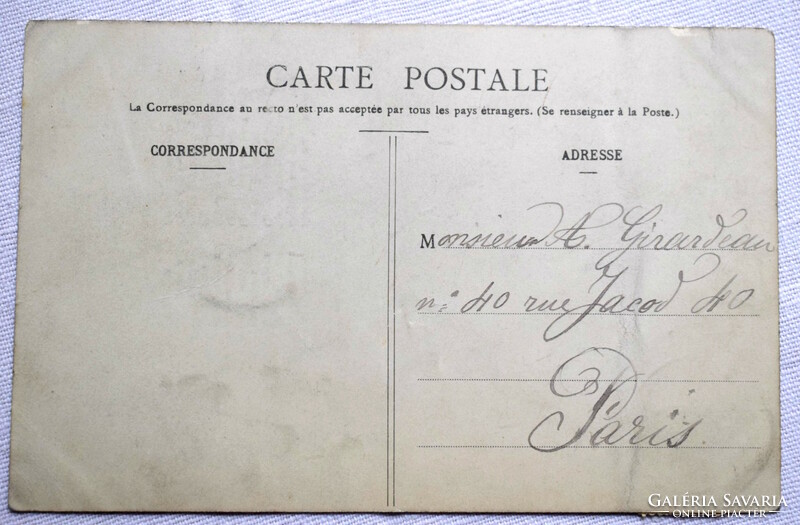 CARTE POSTALE
La Correspondance au recto n'est pas acceptée par tous les pays étrangers. (Se renseigner à la Poste.)
CORRESPONDANCE
ADRESSE
Monsieur A. Girardeau
nº 40 rue Jacob 40
Paris.
GALÉRIA SAVARIA
ONLINE PIACTÉR